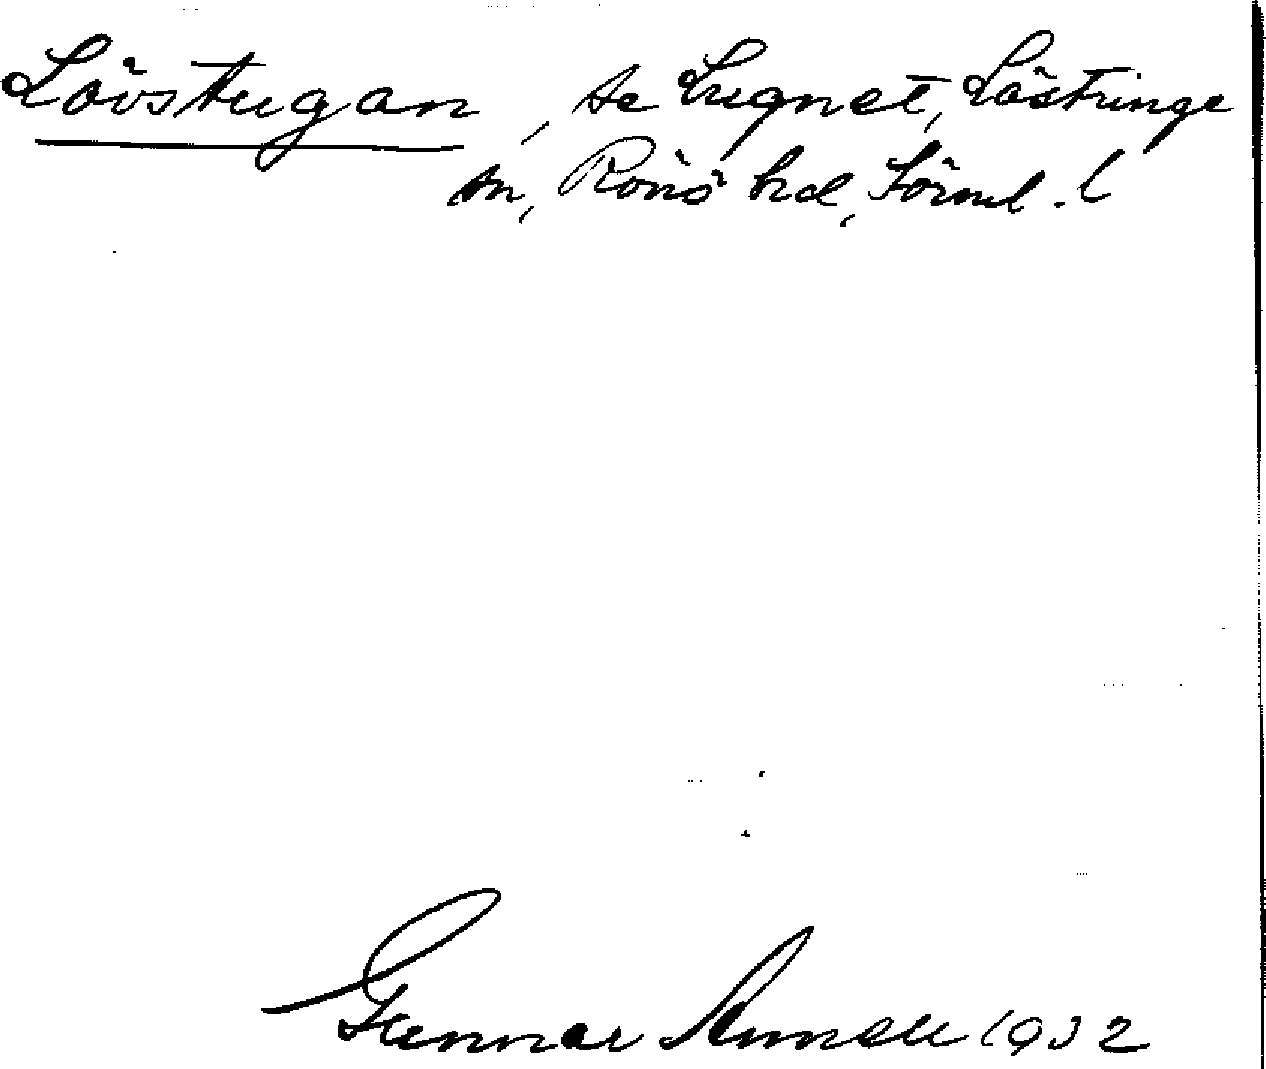 Lövstugan, se Lugnet, Lästringe
sn, Rönö hd, Sörml. l
Gunnar Annell 1932